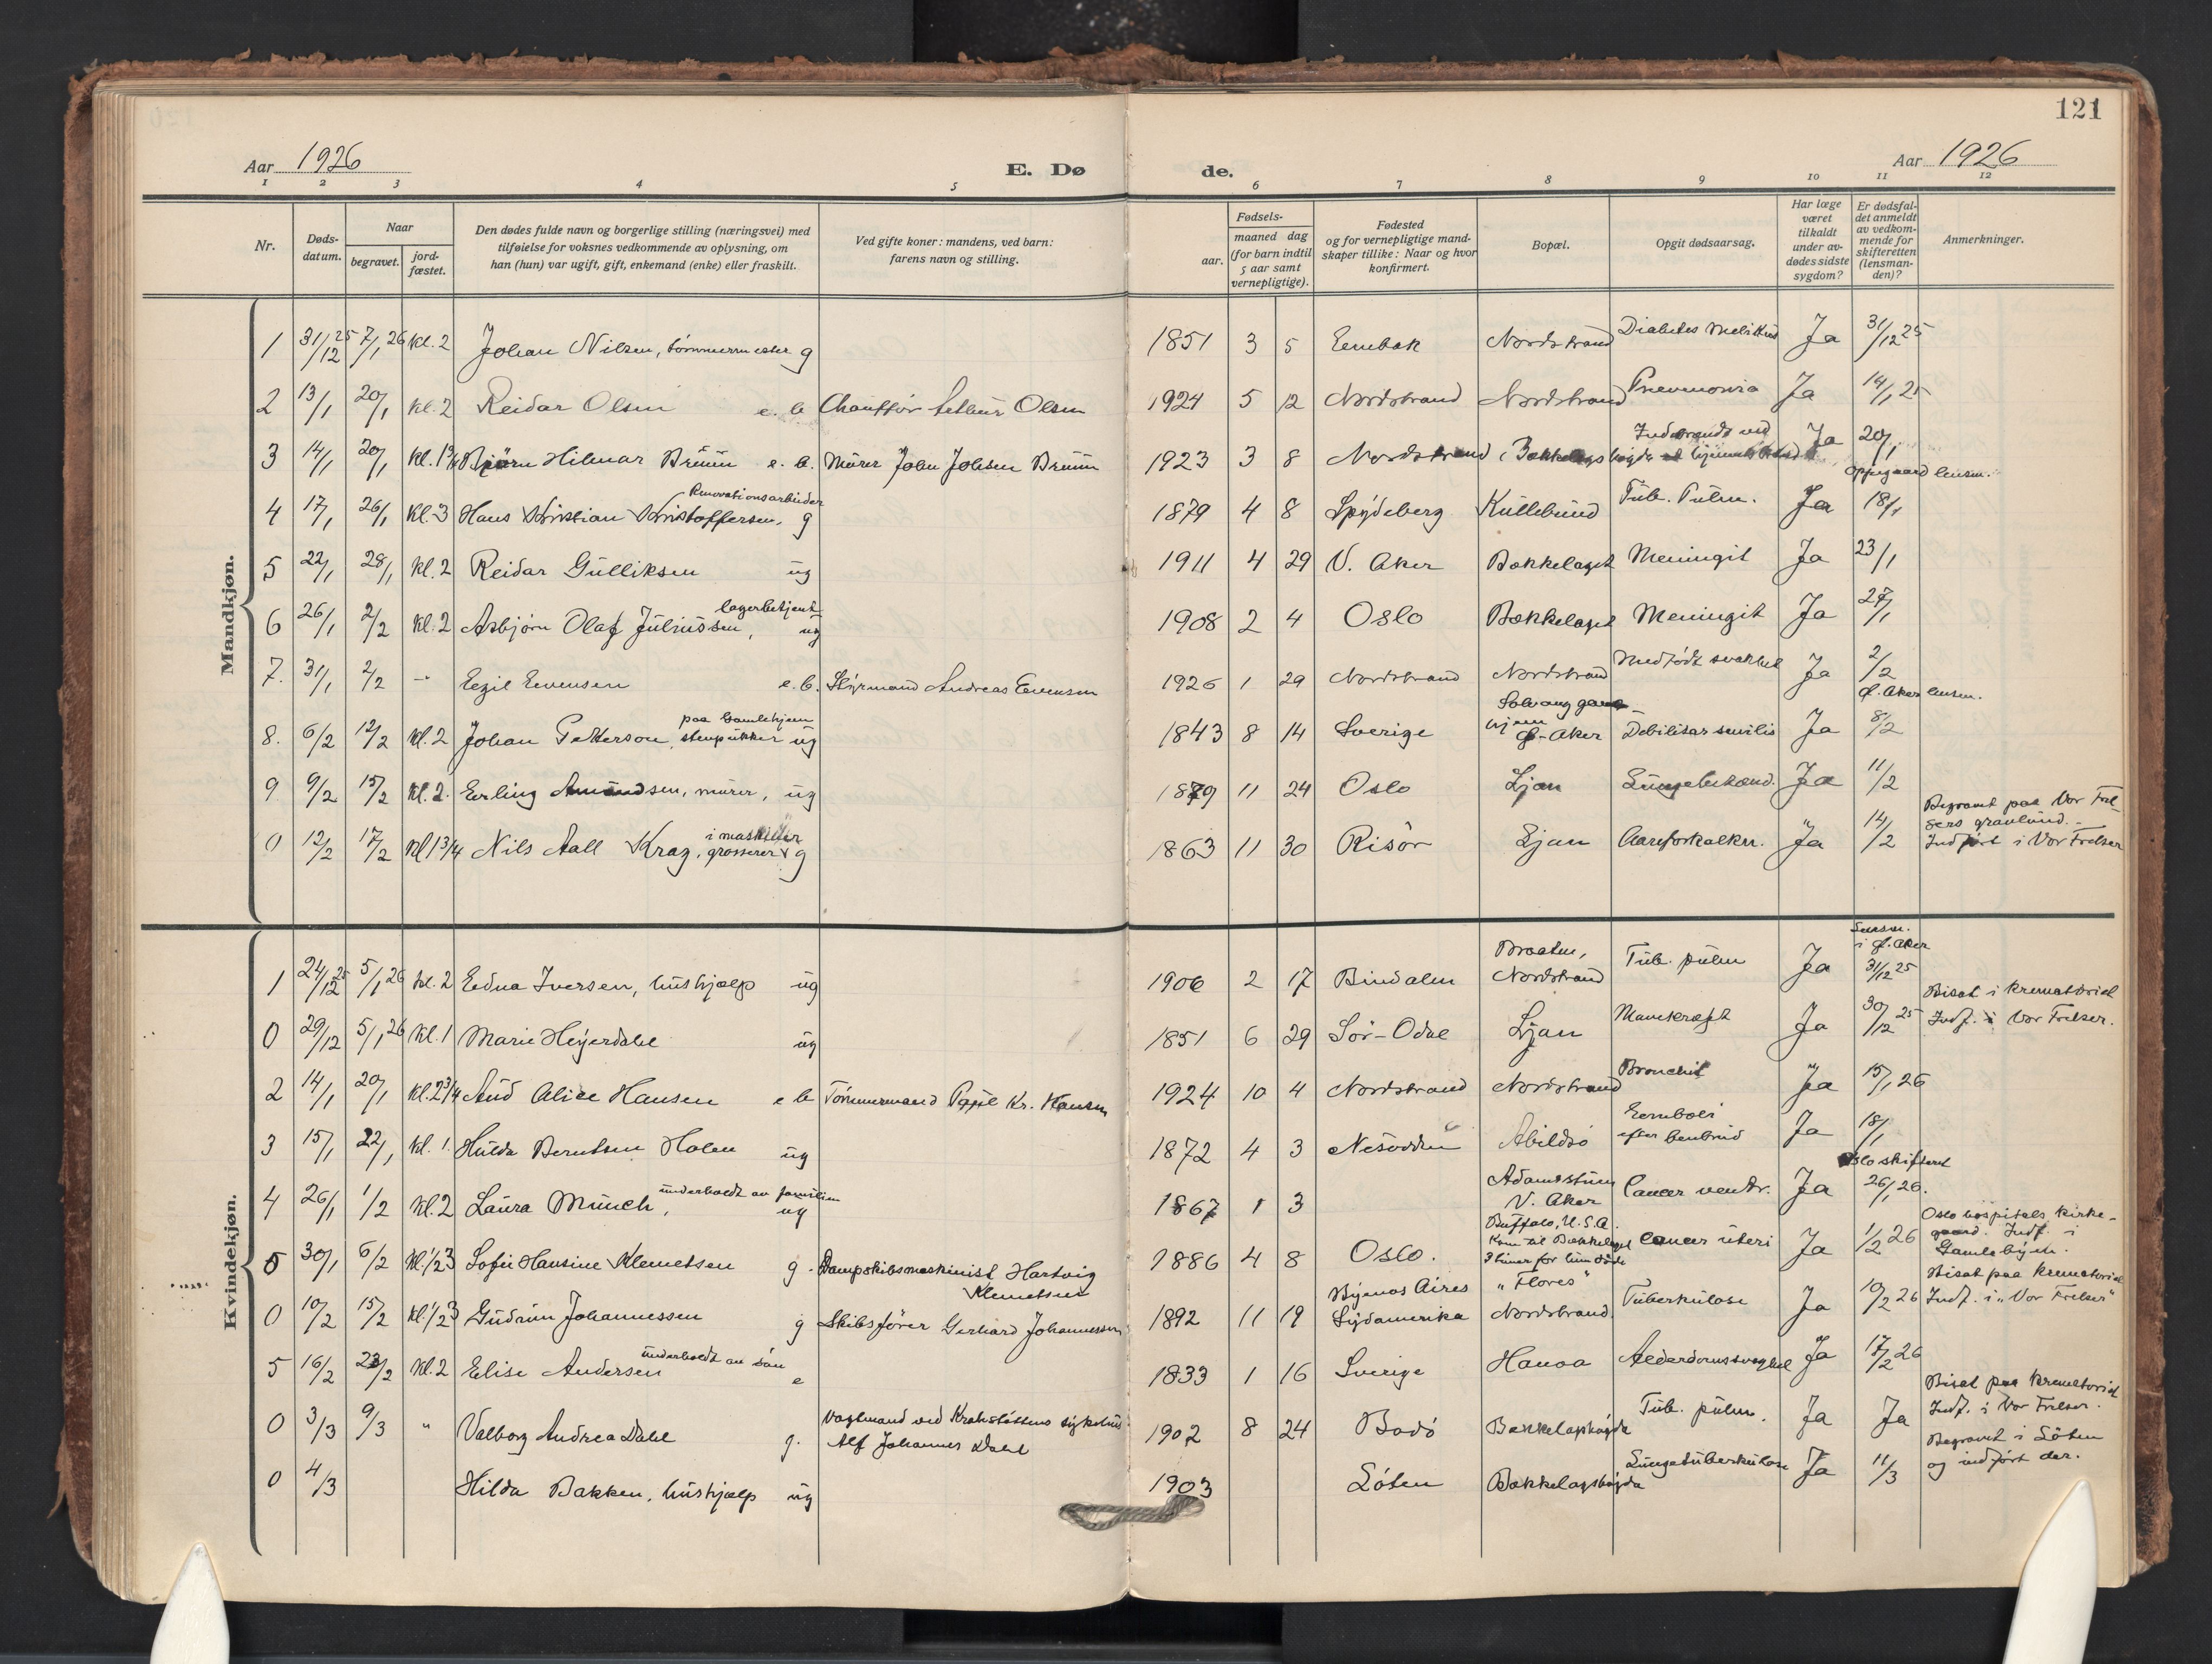 121
Aar 1926 E. Dø de. Aar 1926
1 2 3 4 5 6 7 8 9 10 11 12
Nr. Døds-datum. Naar begravet. jord-fæstet. Den dødes fulde navn og borgerlige stilling (næringsvei) med tilføielse for voksnes vedkommende av oplysning, om han (hun) var ugift, gift, enkemand (enke) eller fraskilt. Ved gifte koner: mandens, ved barn: farens navn og stilling. Fødsels- aar. maaned dag (for barn indtil 5 aar samt vernepligtige). Fødested og for vernepligtige mand-skaper tillike: Naar og hvor konfirmert. Bopæl. Opgit dødsaarsag. Har læge været tilkaldt under av-dødes sidste sygdom? Er dødsfal-det anmeldt av vedkom-mende for skifteretten (lensman-den)? Anmerkninger.
Mandkjøn.
1 31/12 25 7/1 26 kl. 2 Johan Nilsen, tømmermester g 1851 3 5 Enebak Nordstrand Diabetes Melitus Ja 31/12 25
2 13/1 20/1 kl. 2 Reidar Olsen e. b Chauffør Arthur Olsen 1924 5 12 Nordstrand Nordstrand Pneumonia Ja 14/1 25
3 14/1 20/1 kl. 1 3/4 Bjørn Hilmar Bruun e. b. Murer John Johsen Bruun 1923 3 8 Nordstrand Bækkelagshøgda Indebrændt ved Ja 20/1
Oppegaard lensm.
4 17/1 26/1 kl. 3 Hans Kristian Kristoffersen, Renovationsarbeider g 1879 4 8 Spydeberg Kullebund Tub. Pulm. Ja 18/1
5 22/1 28/1 kl. 2 Reidar Gulliksen ug 1911 4 29 V. Aker Bækkelaget Meningit Ja 23/1
6 26/1 2/2 kl. 2 Asbjørn Olaf Juliussen, lagerbetjent ug 1908 2 4 Oslo Bækkelaget Meningit Ja 27/1
7. 31/1 2/2 - Egil Evensen e. b. Styrmand Andreas Evensen 1926 1 29 Nordstrand Nordstrand Medfødt svakhet Ja 2/2
Ø. Aker lensm.
8. 6/2 12/2 kl. 2 Johan Petterson, paa Gamlehjem stenpukker ug 1843 8 14 Sverige Solvang gamle-hjem Ø-Aker Debilitas senilis Ja 8/2
9 9/2 15/2 kl. 2. Erling Amundsen, murer, ug 1879 11 24 Oslo Ljan Lungebetænd. Ja 11/2
0 12/2 17/2 kl 1 3/4 Nils Aall Krag, grosserer i maskiner g 1863 11 30 Risør Ljan Aareforkalkn. Ja 14/2 Begravet paa Vor Frel-sers gravlund. - Indført i Vor Frelser
Kvindekjøn.
1 24/12 25 5/1 26 kl. 2 Edna Iversen, hushjælp ug 1906 2 17 Bindalen Braaten, Nordstrand Tub. pulm Ja Lensm. i Ø. Aker 31/12 25
0 29/12 5/1 26 kl. 1 Marie Heyerdahl ug 1851 6 29 Sør-Odal Ljan Mavekræft Ja 30/12 25 Bisat i krematoriet Indf. i Vor Frelser.
2 14/1 20/1 kl. 2 3/4 Aud Alice Hansen e b Tømmermand Paul Kr. Hansen 1924 10 4 Nordstrand Nordstrand Bronchit Ja 15/1 26
3 15/1 22/1 kl. 1. Hulda Berntsen Holen ug 1872 4 3 Nesodden Abildsø Emboli efter benbrud Ja 18/1
Oslo skifteret
4 26/1 1/2 kl. 2 Laura Munch, underholdt av familien ug 1867 1 3 Adamstuen V. Aker Cancer ventr. Ja 26/1 26.
5 30/1 6/2 kl. 1/2 3 Sofie Hansine Klemetsen g. Dampskibsmaskinist Hartvig Klemetsen 1886 4 8 Oslo. Buffalo, U.S.A. Kom til Bækkelaget 3 timer før hun døde Cancer uteri Ja 1/2 26 Oslo hospitals kirke-gaard. Indf. i Gamlebyen.
0 10/2 15/2 kl. 1/2 3 Gudrun Johannessen g Skibsfører Gerhard Johannessen 1892 11 19 Byenos Aires Sydamerika "Flores" Nordstrand. Tuberkulose Ja 10/2 26 Bisat paa krematoriet Indf. i "Vor Frelser"
5 16/2 23/2 kl. 2 Elise Andersen underholdt av søn e 1833 1 16 Sverige Hauoa Alderdomssvaghet Ja 17/2 26
0 3/3 9/3 " Valborg Andrea Dahl g. Vagtmand ved Krohgstøttens sykehus Alf Johannes Dahl 1902 8 24 Bodø Bækkelagshøgda Tub. pulm. Ja Ja Bisat paa krematoriet Indf. i Vor Frelser.
0 4/3 Hilda Bakken, hushjælp ug 1903 Løten Bækkelagshøgda Lungetuberkulose Ja 11/3 Begravet i Løten og indført der.